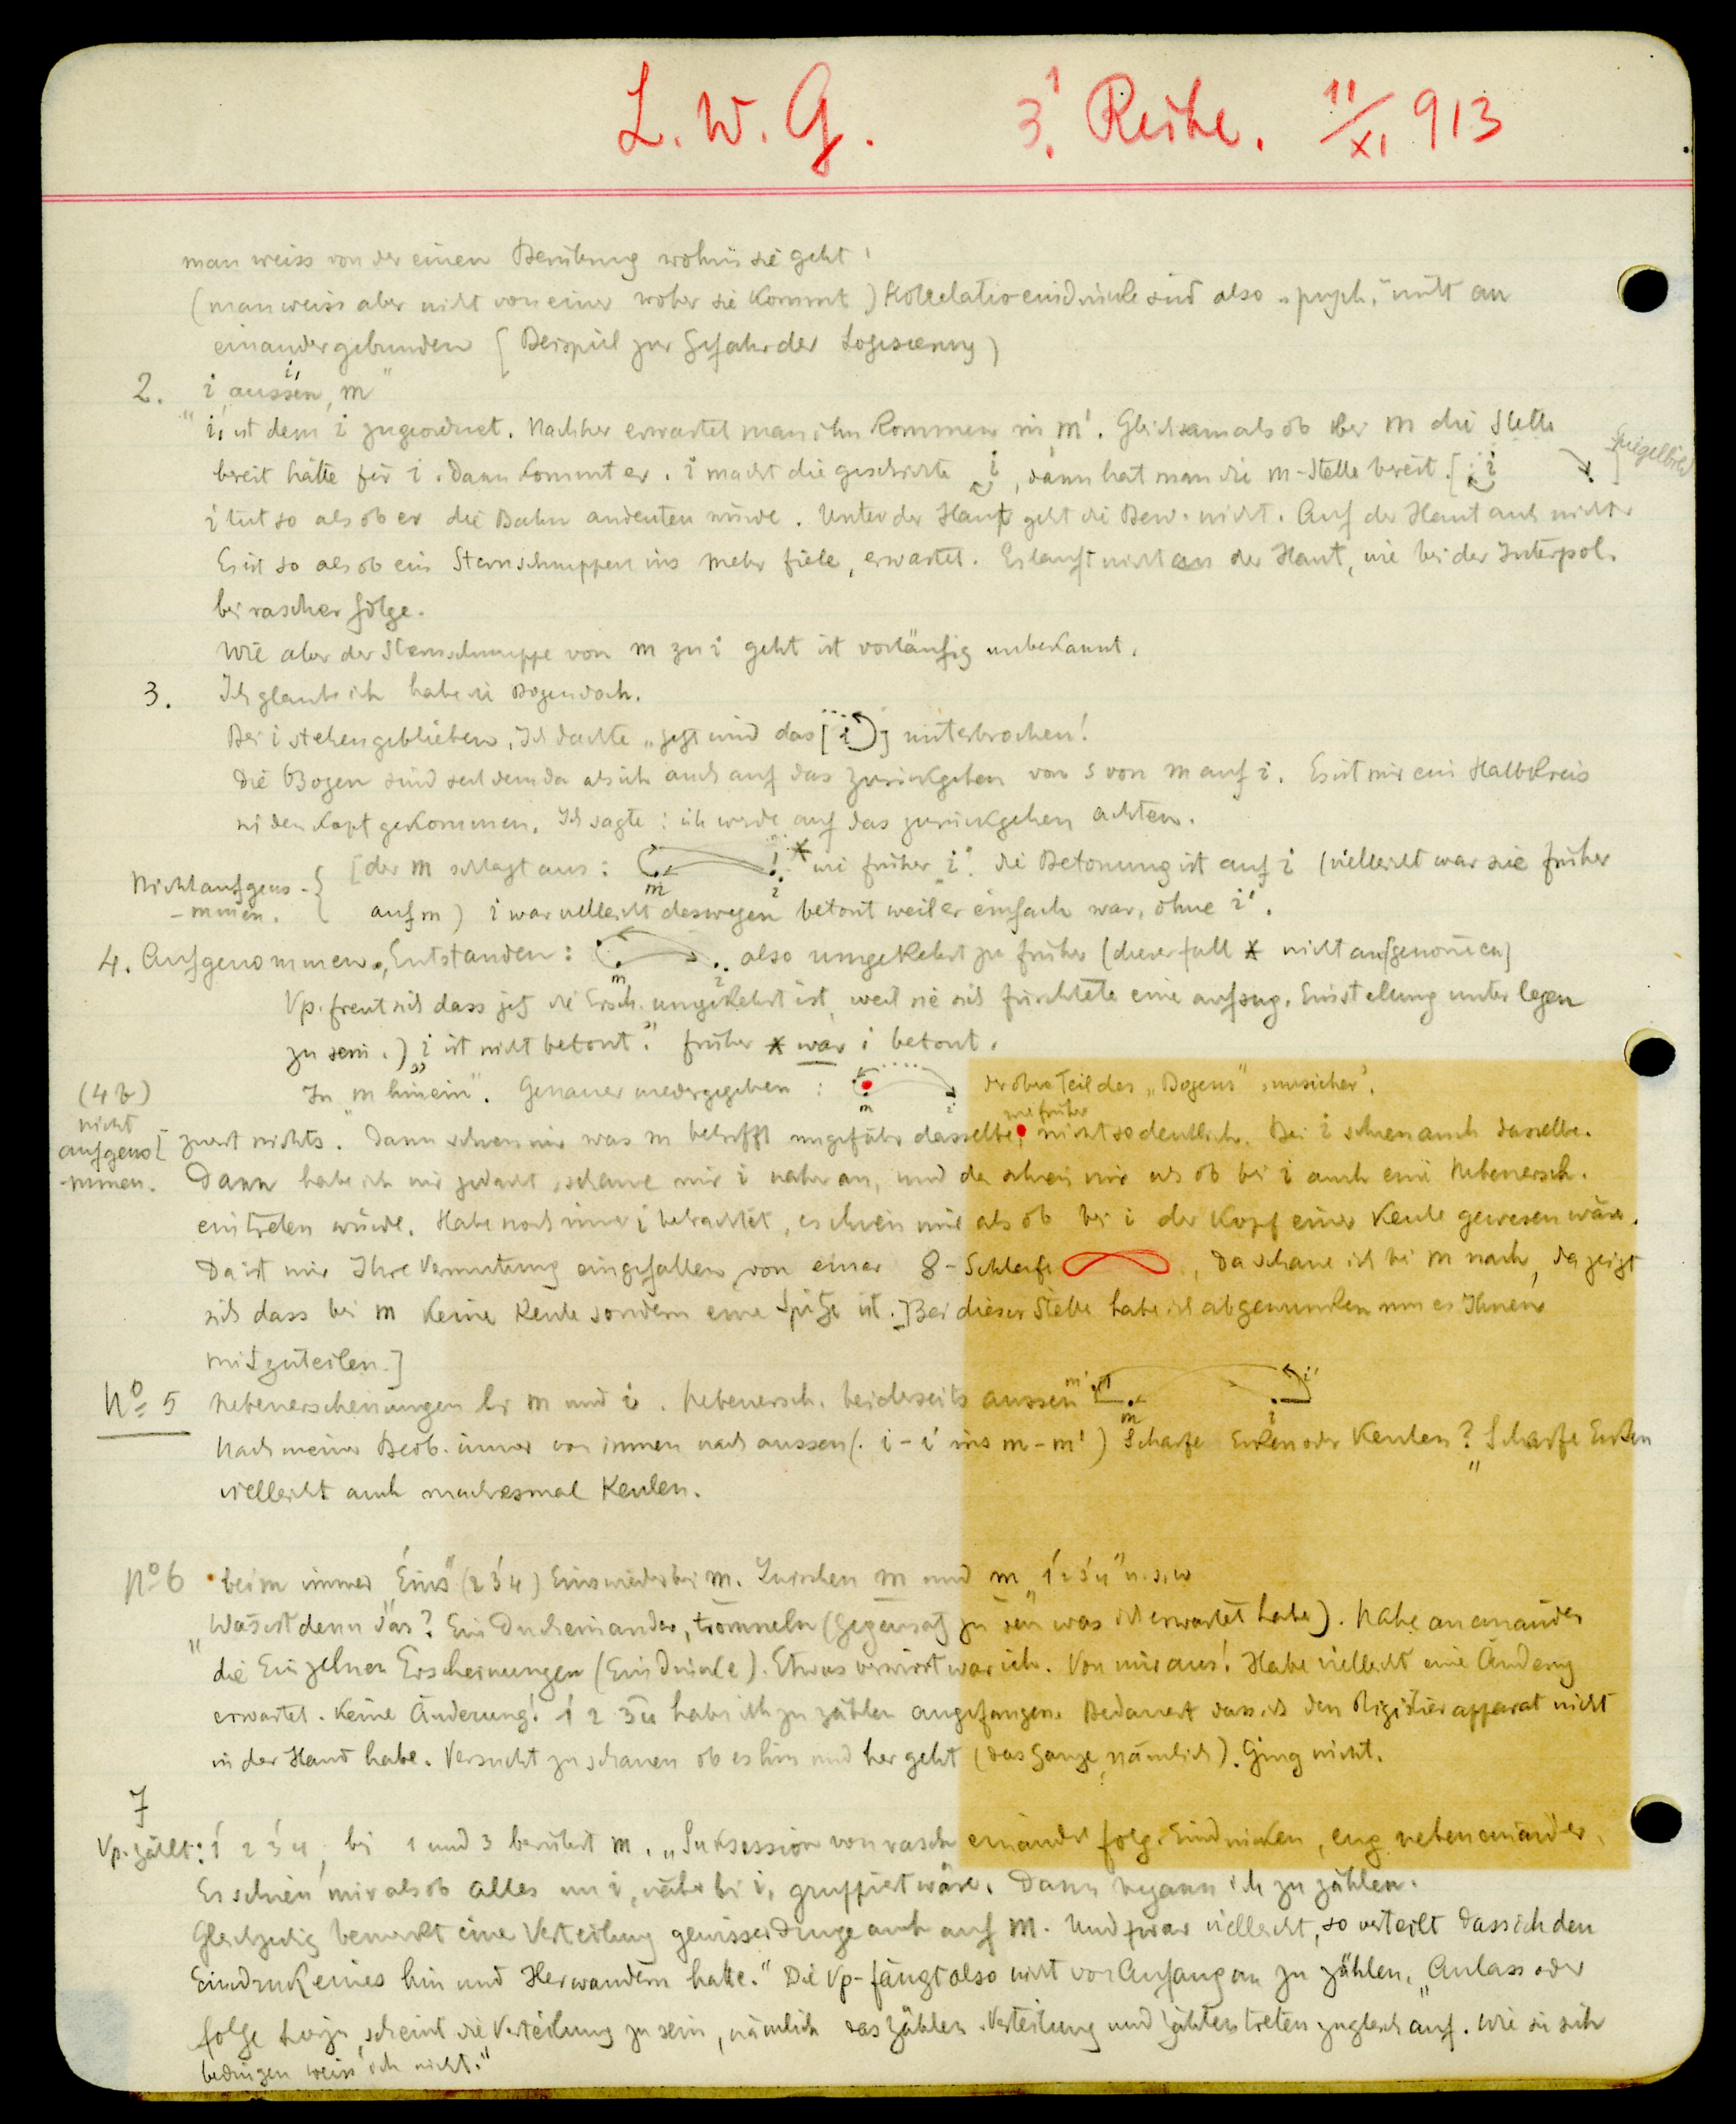 L. W. G. 3. Reihe. 11/XI 913
man weiss von der einen Berührung wohin sie geht
(man weiss aber nicht von einer woher sie kommt) sind also „psych." nicht an
einander gebunden (Beispiel zur Gefahr der Logisierung)
2. i aussen, m"
"i, ist dem i zugeordnet. Nachher erwartet man ihn kommen in m'. Gleichsam als ob bei m die Stelle
bereit hätte für i. Dann kommt er. i macht die geschichte i, dann hat man die m-Stelle bereit. [ i ] Spiegelbild
i tut so als ob er die Bahn andeuten würde. Unter der Haut geht die Bew. nicht. Auf der Haut auch nicht
Es ist so als ob ein Sternschnuppen ins Mehr fiele, erwartet. Es lauft nicht an der Haut, wie bei der Interpol.
bei rascher folge.
Wie aber der Sternschnuppe von m zu i geht ist vorläufig unbekannt.
3. Ich glaube ich habe die Bogen doch.
Bei i stehen geblieben. Ich dachte „jetzt wird das [i] unterbrochen!
Die Bogen sind seit dem da als ich auch auf das Zurückgehen von s von m auf i. Es ist mir ein Halbkreis
in den Kopf gekommen. Ich sagte: ich werde auf das zurückgehen achten.
Nicht aufgeno-mmen. { [der m schlagt aus: m i * wie früher i". die Betonung ist auf i (vielleicht war sie früher
auf m) i war vielleicht deswegen betont weil er einfach war, ohne i'.
4. Aufgenommen. Entstanden: m i also umgekehrt zu früher (dieser fall * nicht aufgenommen)
Vp. freut sich dass jetzt die Ersch. umgekehrt ist, weil sie sich fürchtete eine aufsug. Einstellung unterlegen
zu sein.) „i ist nicht betont." früher * war i betont.
In „m hinein". Genauer niedergegeben: m i der obere Teil des „Bogens" unsicher.
(4b) nicht aufgeno-mmen. [ zuerst nichts. Dann schien mir was m betrifft ungefähr dasselbe wie früher nicht so deutlich. Bei i schien auch dasselbe.
Dann habe ich mir gedacht, schaue mir i näher an, und da schien mir als ob bei i auch eine Nebenersch.
eintreten würde. Habe noch immer i betrachtet, es schien mir als ob bei i der Kopf einer Keule gewesen wäre.
Da ist mir Ihre Vermutung eingefallen von einer 8-Schleife, da schaue ich bei m nach, da zeigt
sich dass bei m keine Keule sondern eine Spitze ist.] Bei dieser Stelle habe ich abgewunken um es Ihnen
mitzuteilen.]
No 5 Nebenerscheinungen bei m und i. Nebenersch. beiderseits aussen m' m i i'
Nach meiner Beob. immer von innen nach aussen (. i-i' ins m-m') Scharfe Ecken oder Keulen? „Scharfe Ecken
vielleicht auch machesmal Keulen.
No 6 bei m immer „Eins" (2 3 4) Eins wieder bei m. Zwischen m und m „1 2 3 4" u. s. w
„Was ist denn das? Ein Ducheinander, trommeln (Gegensatz zu dem was ich erwartet habe). Nahe an einander
die Einzelnen Erscheinungen (Eindrücke). Etwas verwirrt war ich. Von mir aus! Habe vielleicht eine Änderung
erwartet. Keine Änderung! 1 2 3 4 habe ich zu zählen angefangen. Bedauert dass ich den Rigistrierapparat nicht
in der Hand habe. Versucht zu schauen ob es hin und her geht (das Ganze nämlich). Ging nicht.
7
Vp. zählt: 1 2 3 4, bei 1 und 3 berührt m. „Suksession von rasch einander folg. Eindrücken, eng nebeneinander.
Es schien mir als ob alles um i, näher bei i, gruppiert wäre. Dann begann ich zu zählen.
Gleichzeitig bemerkt eine Verteilung gewisser Dinge auch auf m. Und zwar vielleicht, so verteilt dass ich den
Eindruck eines hin und Herwandern hatte." Die Vp. fängt also nicht von Anfang an zu zählen. „Anlass oder
folge hievon scheint die Verteilung zu sein, nämlich das Zählen. Verteilung und Zählen treten zugleich auf. Wie sie sich
bedingen weiss ich nicht."